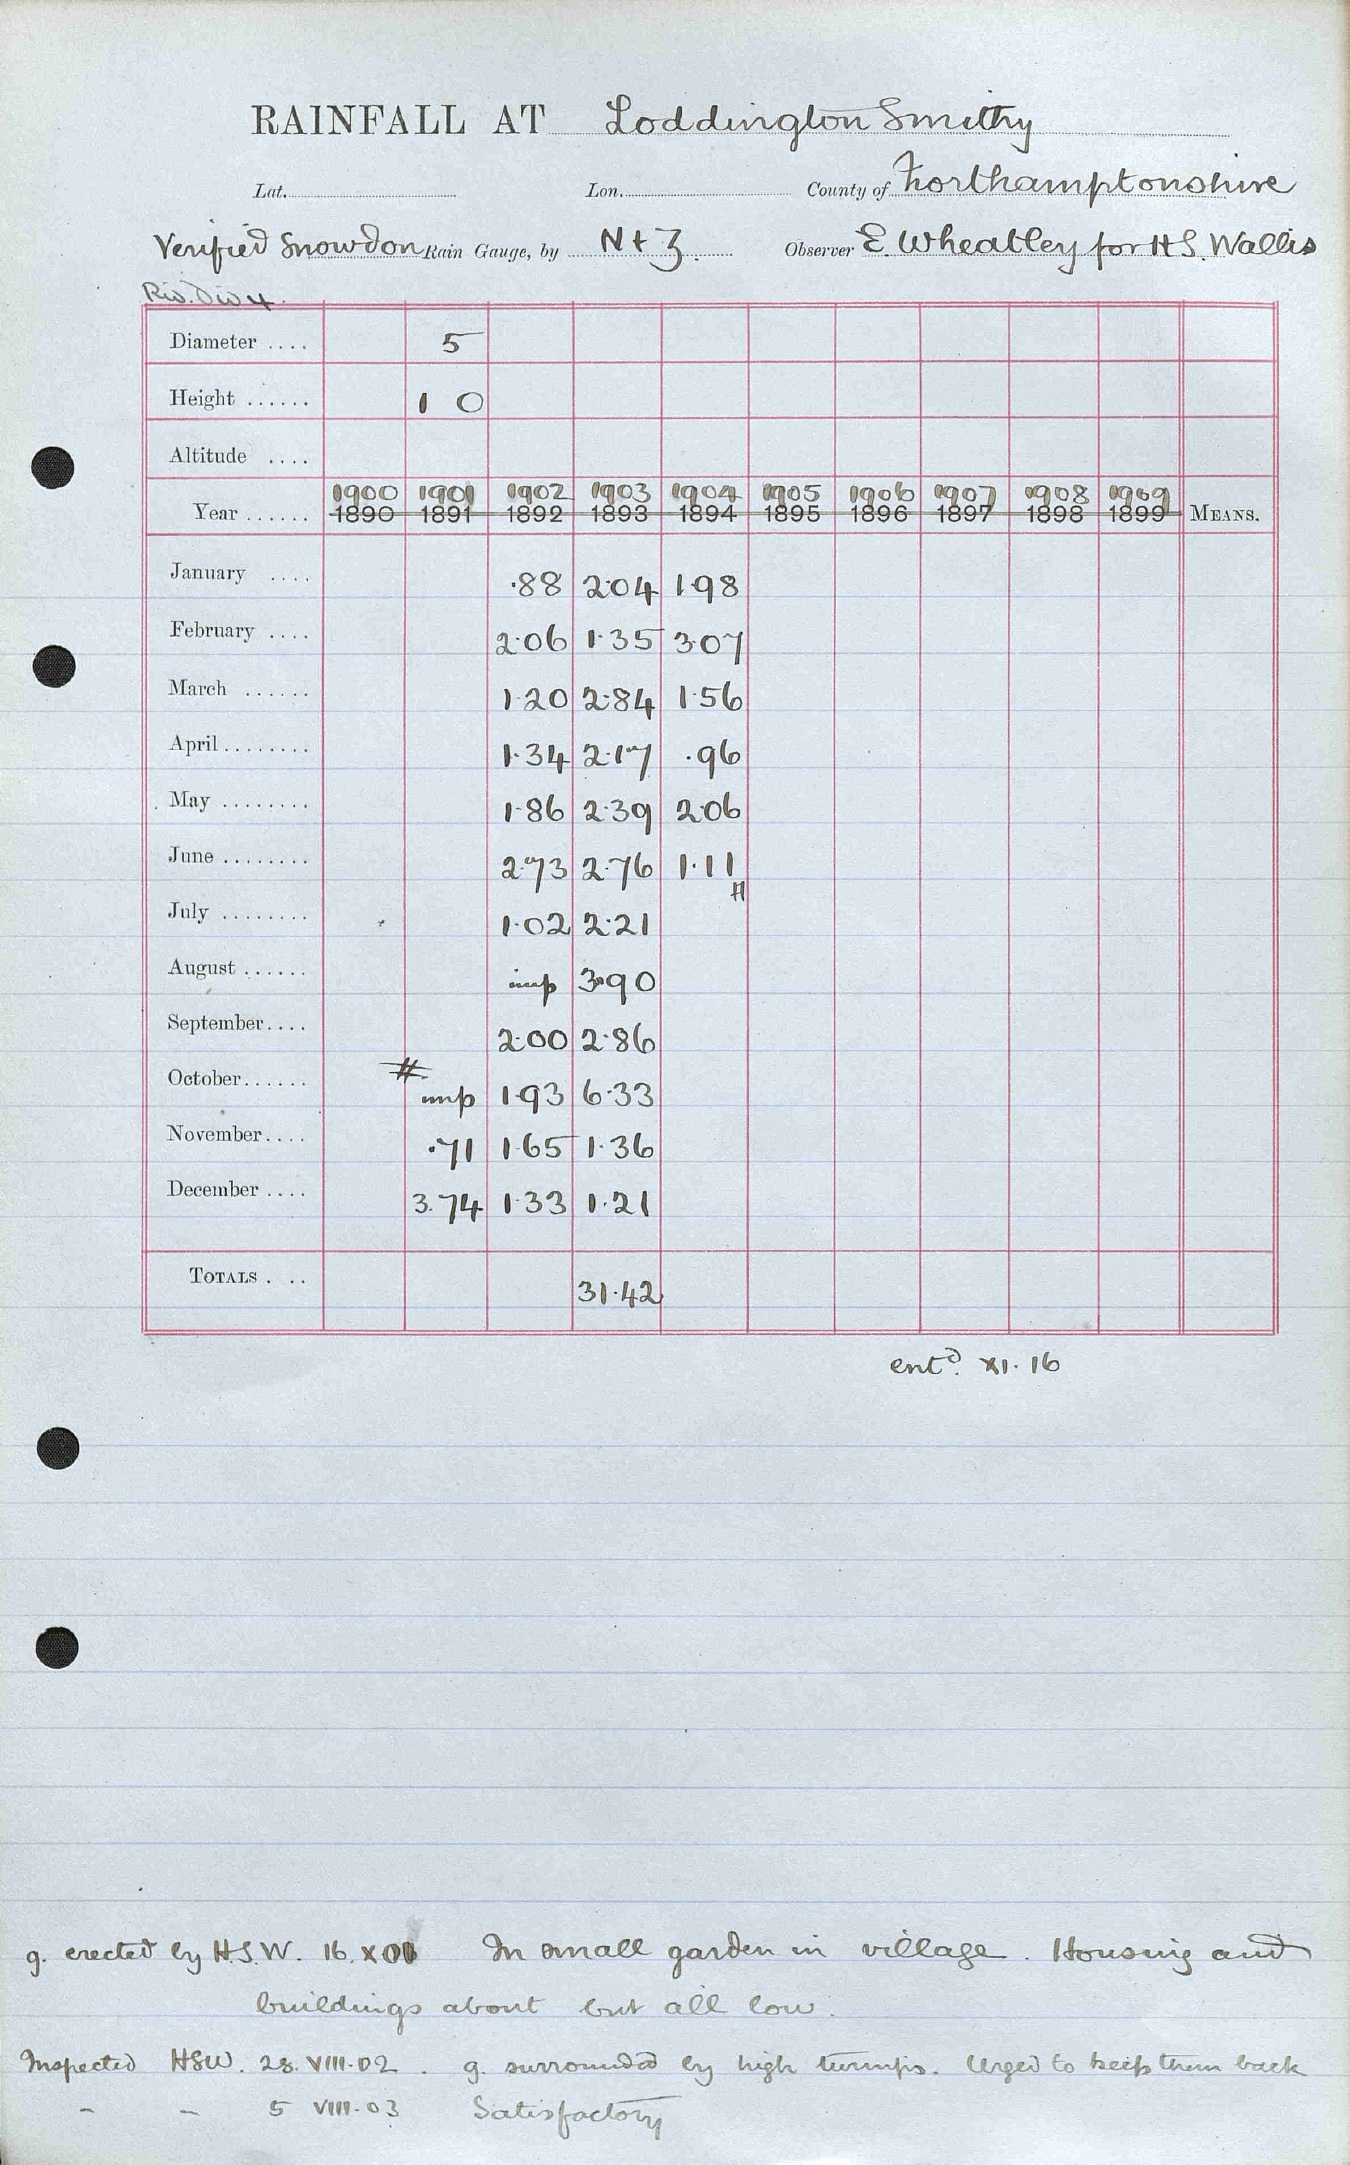 RAINFALL AT Loddington Smithy
Lat. Lon. County of Northamptonshire
Verified Snowdon Rain Gauge, by N + Z. Observer E. Wheatley for H.S. Wallis
Riv. Div 4.
Diameter .... 5
Height ...... 1 0
Altitude ....
1900 1901 1902 1903 1904 1905 1906 1907 1908 1909
Year ...... 1890 1891 1892 1893 1894 1895 1896 1897 1898 1899 MEANS.
January .... .88 2.04 1.98
February .... 2.06 1.35 3.07
March ...... 1.20 2.84 1.56
April ........ 1.34 2.17 .96
May ........ 1.86 2.39 2.06
June ........ 2.73 2.76 1.11
July ........ 1.02 2.21
August ...... imp 3.90
September.... 2.00 2.86
October...... imp 1.93 6.33
November.... .71 1.65 1.36
December .... 3.74 1.33 1.21
TOTALS . .. 31.42
entd. XI.16
g. erected by H.S.W. 16. X 01 In small garden in village. Housing and
buildings about but all low.
Inspected HSW. 28. VIII.02. g. surrounded by high turnips. Urged to keep them back
" " 5 VIII.03 Satisfactory